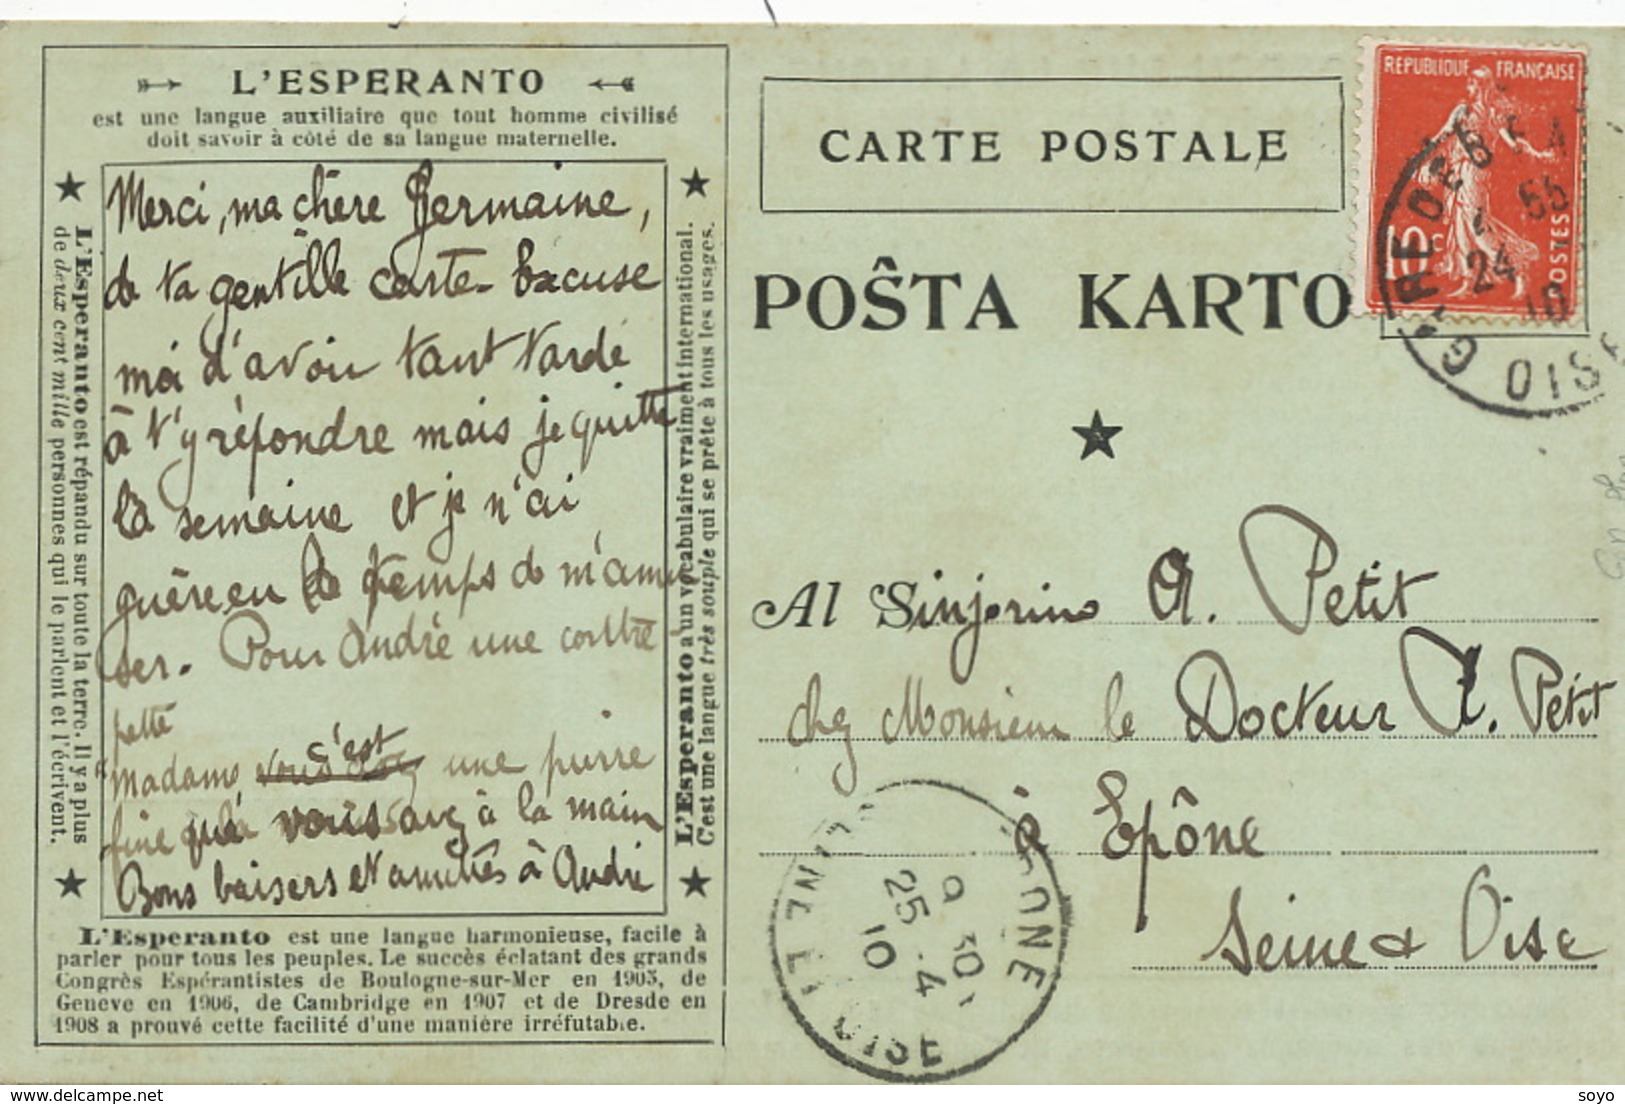 L'ESPERANTO
est une langue auxiliaire que tout homme civilisé
doit savoir à côté de sa langue maternelle.
L'Esperanto est répandu sur toute la terre. Il y a plus
de deux cent mille personnes qui le parlent et l'écrivent.
Merci, ma chère Germaine,
de ta gentille carte. Excuse
moi d'avoir tant tardé
à t'y répondre mais je quitte
la semaine et je n'ai
guère eu le temps de m'amu
ser. Pour André une contre
petté
"Madame, c'est une pierre
fine que vous avez à la main
Bons baisers et amitiés à André
L'Esperanto a un vocabulaire vraiment international.
C'est une langue très souple qui se prête à tous les usages.
L'Esperanto est une langue harmonieuse, facile à
parler pour tous les peuples. Le succès éclatant des grands
Congrès Espérantistes de Boulogne-sur-Mer en 1905, de
Genève en 1906, de Cambridge en 1907 et de Dresde en
1908 a prouvé cette facilité d'une manière irréfutable.
CARTE POSTALE
POŜTA KARTO
REPUBLIQUE FRANÇAISE
10 c
POSTES
24
10
OISE
Al Sinjorino A. Petit
chez Monsieur le Docteur A. Petit
à Epône
Seine & Oise
EPONE
9 30
25 - 4
10
SEINE ET OISE
soyo